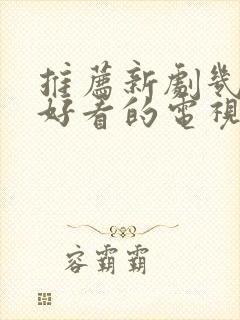 推薦新劇幾
好看的電視
容霸霸